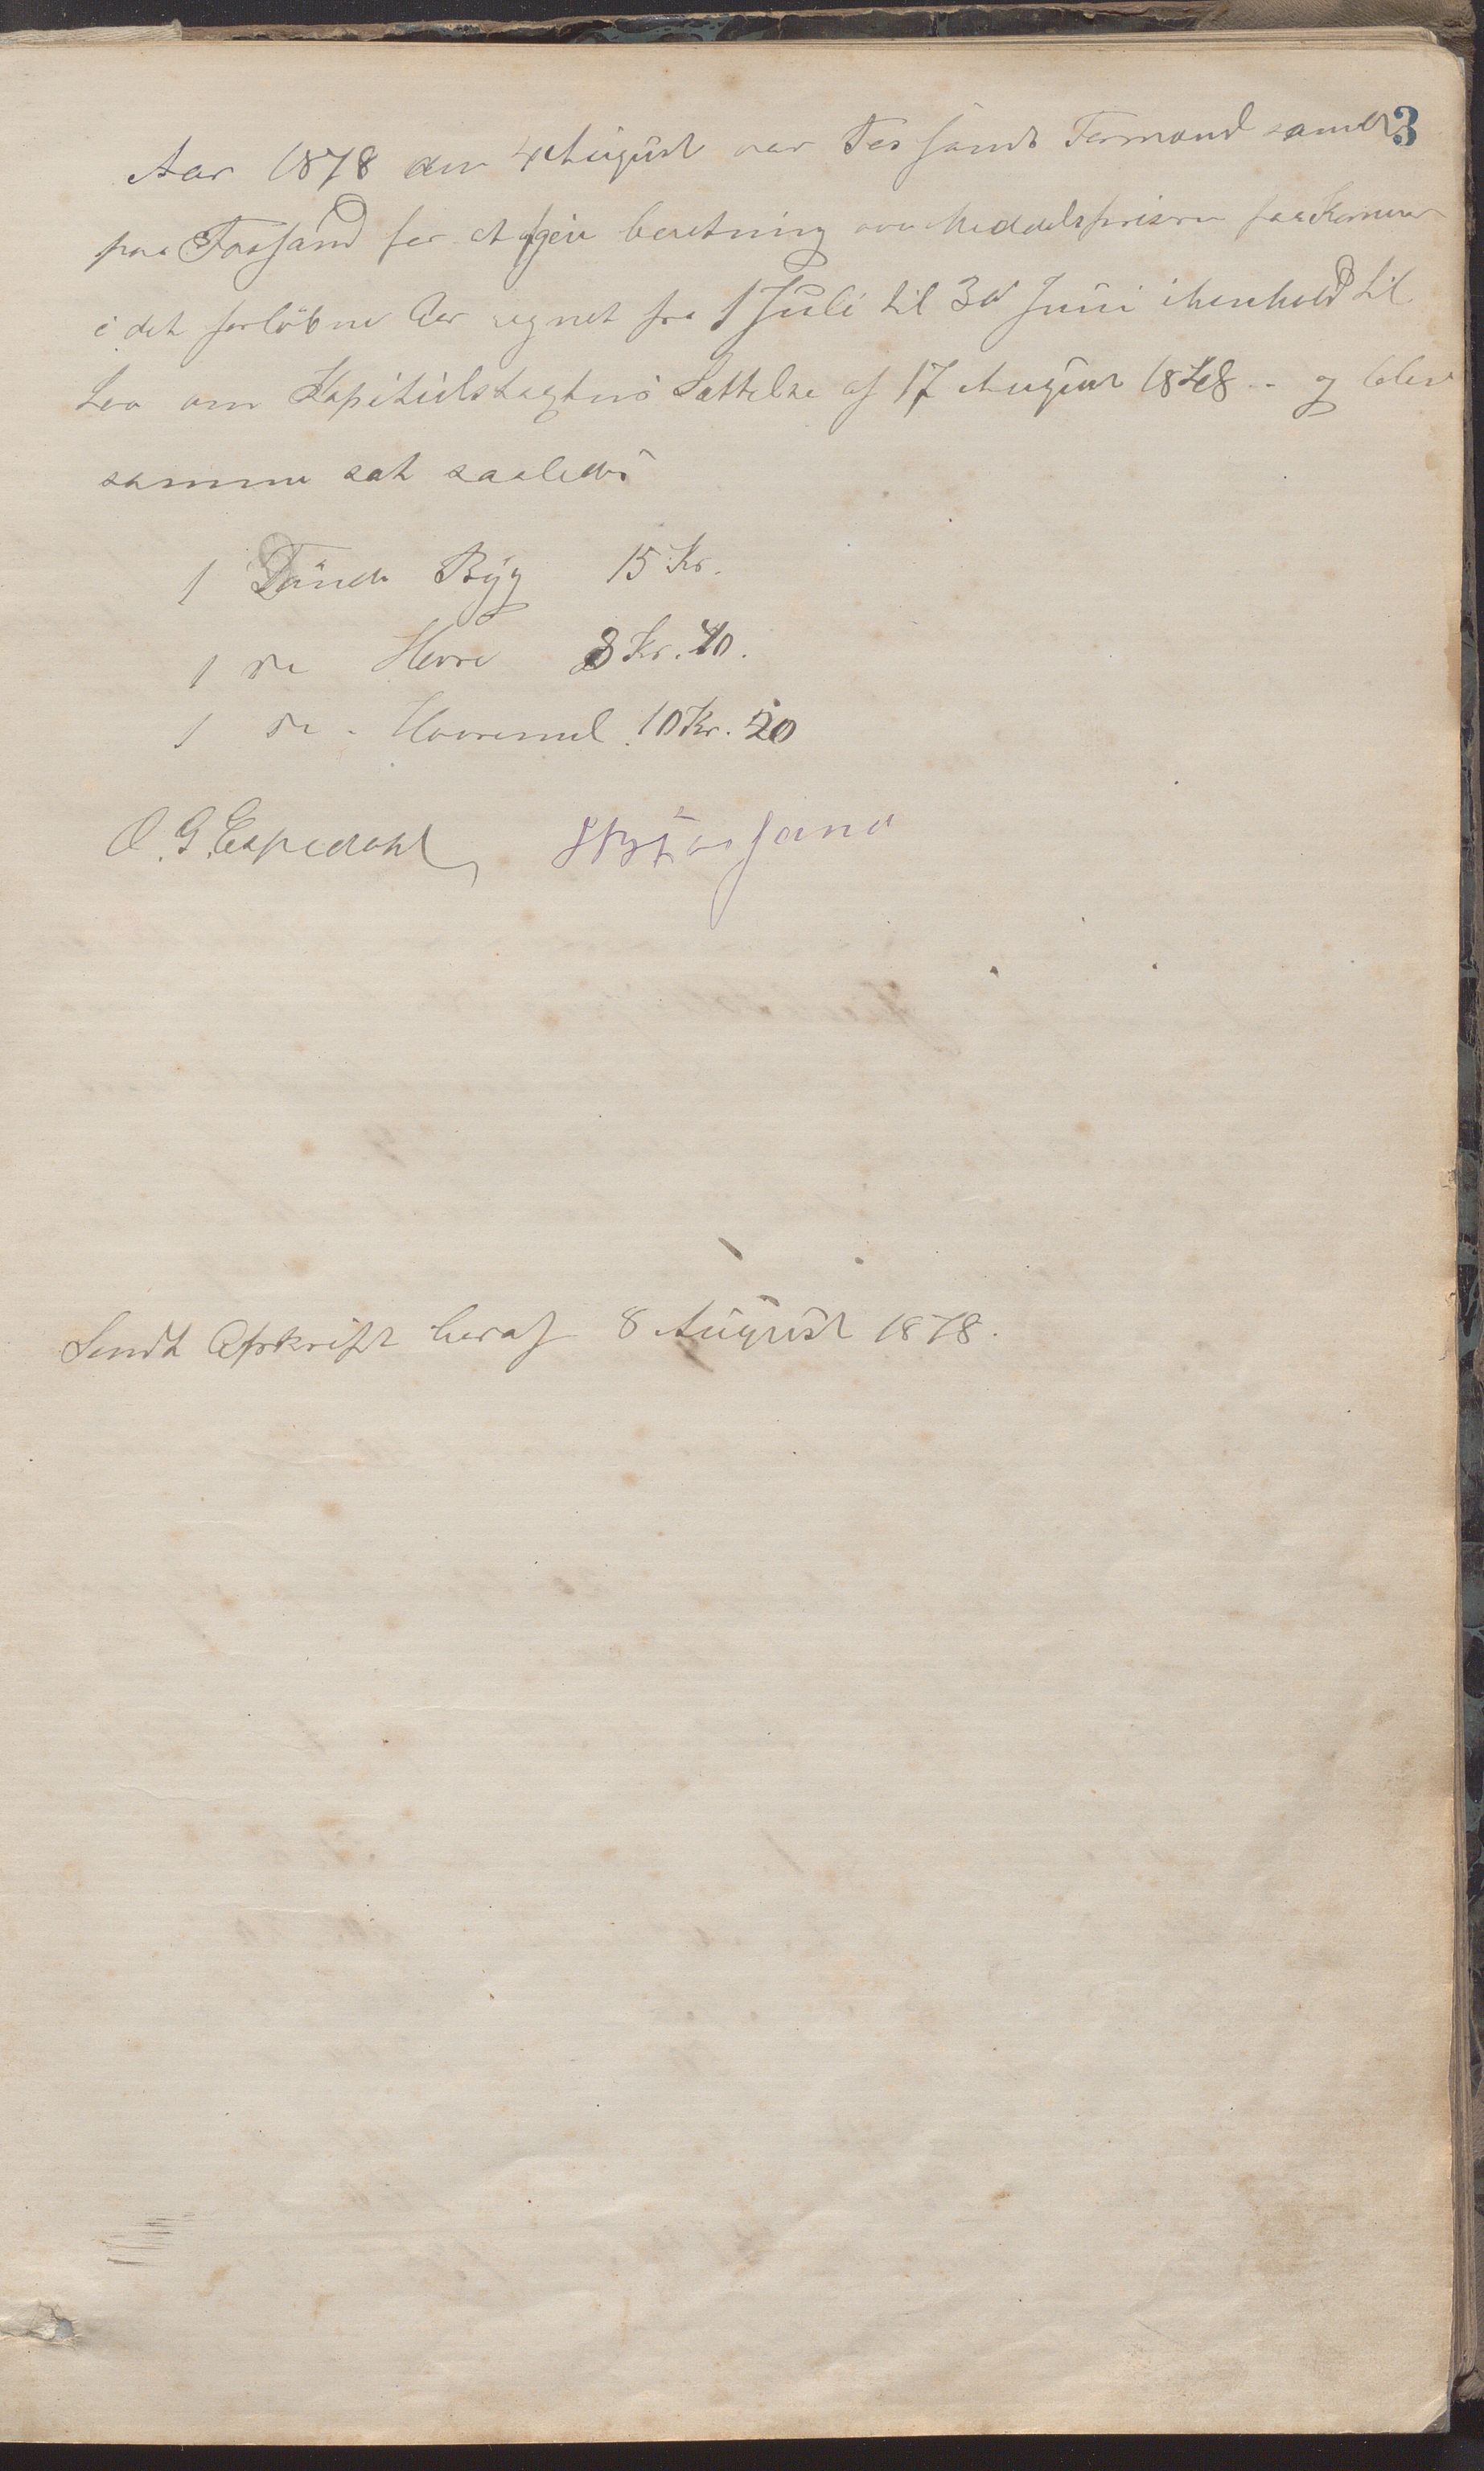 3
Aar 1878 den 4 August var Fossands Formand samlet
paa Fossand for at afgive beretning over Middelsprisen paa Kornvarer
i det forløbne Aar regnet fra 1 Juli til 30 Juni i henhold til
Lov om Kapitulstagtens Sættelse af 17 August 1848 - og blev
samme sat saaledes
1 Tønde Byg 15 Kr.
1 do Havre 8 Kr. 40.
1 do - Havremel 10 Kr. 20
O. G. Espedahl, Fossand
Sendt Afskrift heraf 8 August 1878.